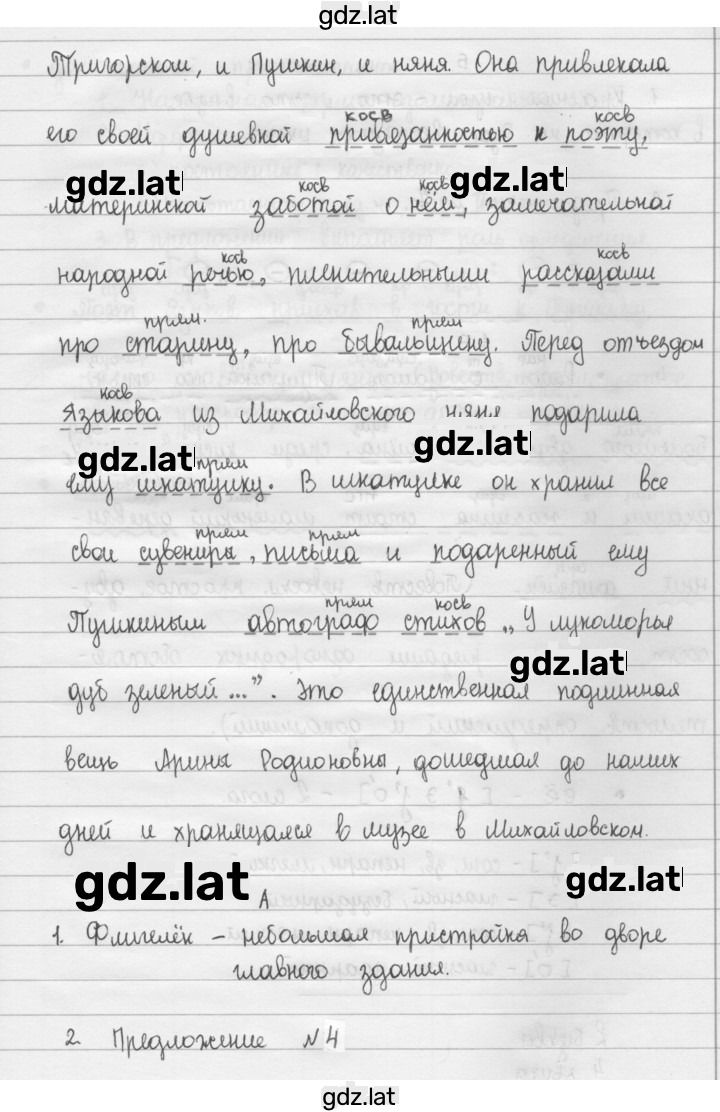 gdz.lat
Тригорском, и Пушкин, и няня. Она привлекала
косв косв
его своей душевной привязанностью к поэту,
gdz.lat gdz.lat
косв косв
материнской заботой о нём, замечательной
косв косв
народной речью, пленительными рассказами
прям. прям
про старину, про бывальщину. Перед отъездом
косв
Языкова из Михайловского няня подарила
gdz.lat gdz.lat
прям
ему шкатулку. В шкатулке он хранил все
прям прям
свои сувениры, письма и подаренный ему
прям косв
Пушкиным автограф стихов „У лукоморья
gdz.lat
дуб зеленый...”. Это единственная подлинная
вещь Арины Родионовны, дошедшая до наших
дней и хранящаяся в музее в Михайловском.
gdz.lat gdz.lat
А
1. Флигелёк – небольшая пристройка во дворе
главного здания.
2. Предложение №4
gdz.lat